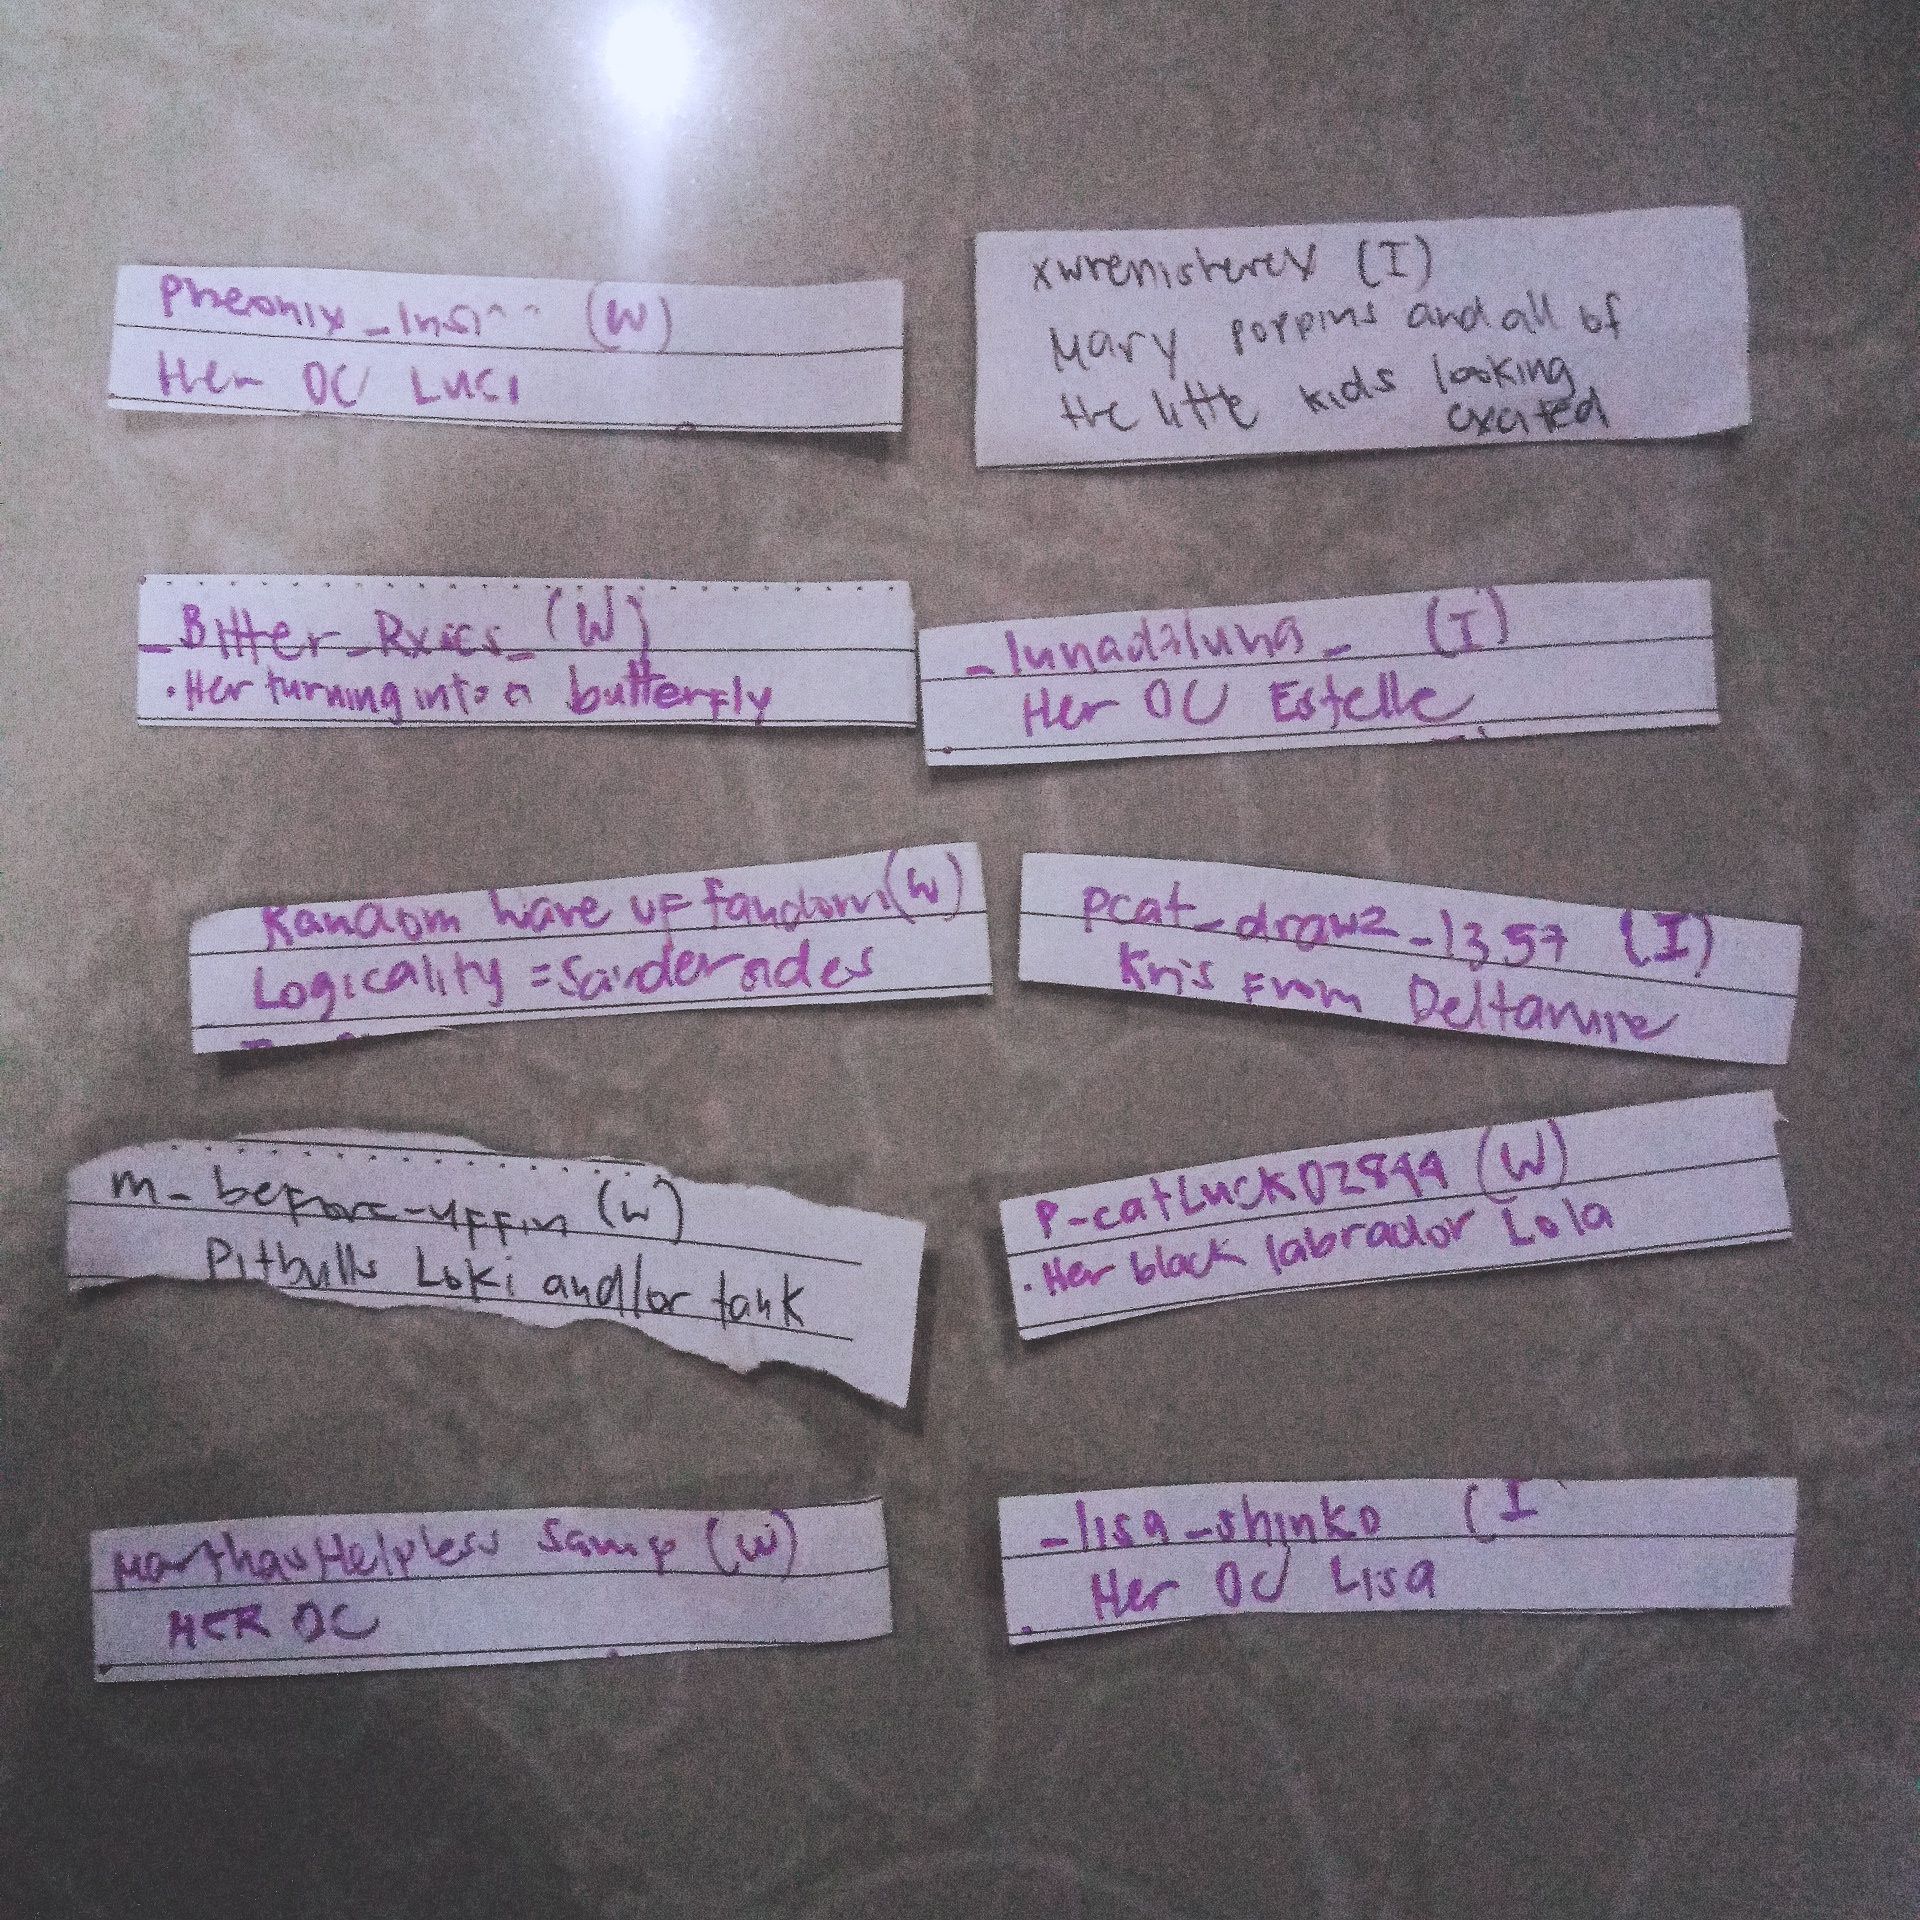 Pheonix_ (W)
Her OC Luci
xwrenisherex (I)
Mary poppins and all of
the little kids looking
excited
_Bitter_Rxses_ (W)
• Her turning into a butterfly
_lunadaluna_ (I)
Her OC Estelle
Random wave of fandom (W)
Logicality =
pcat_drawz_1357 (I)
Kris From Deltarune
m_before-uffin (W)
Pitbulls Loki and/or tank
P-catLuck02844 (W)
. Her black labrador Lola
Helpless (W)
HER OC
_lisa_shinko (I
Her OC Lisa